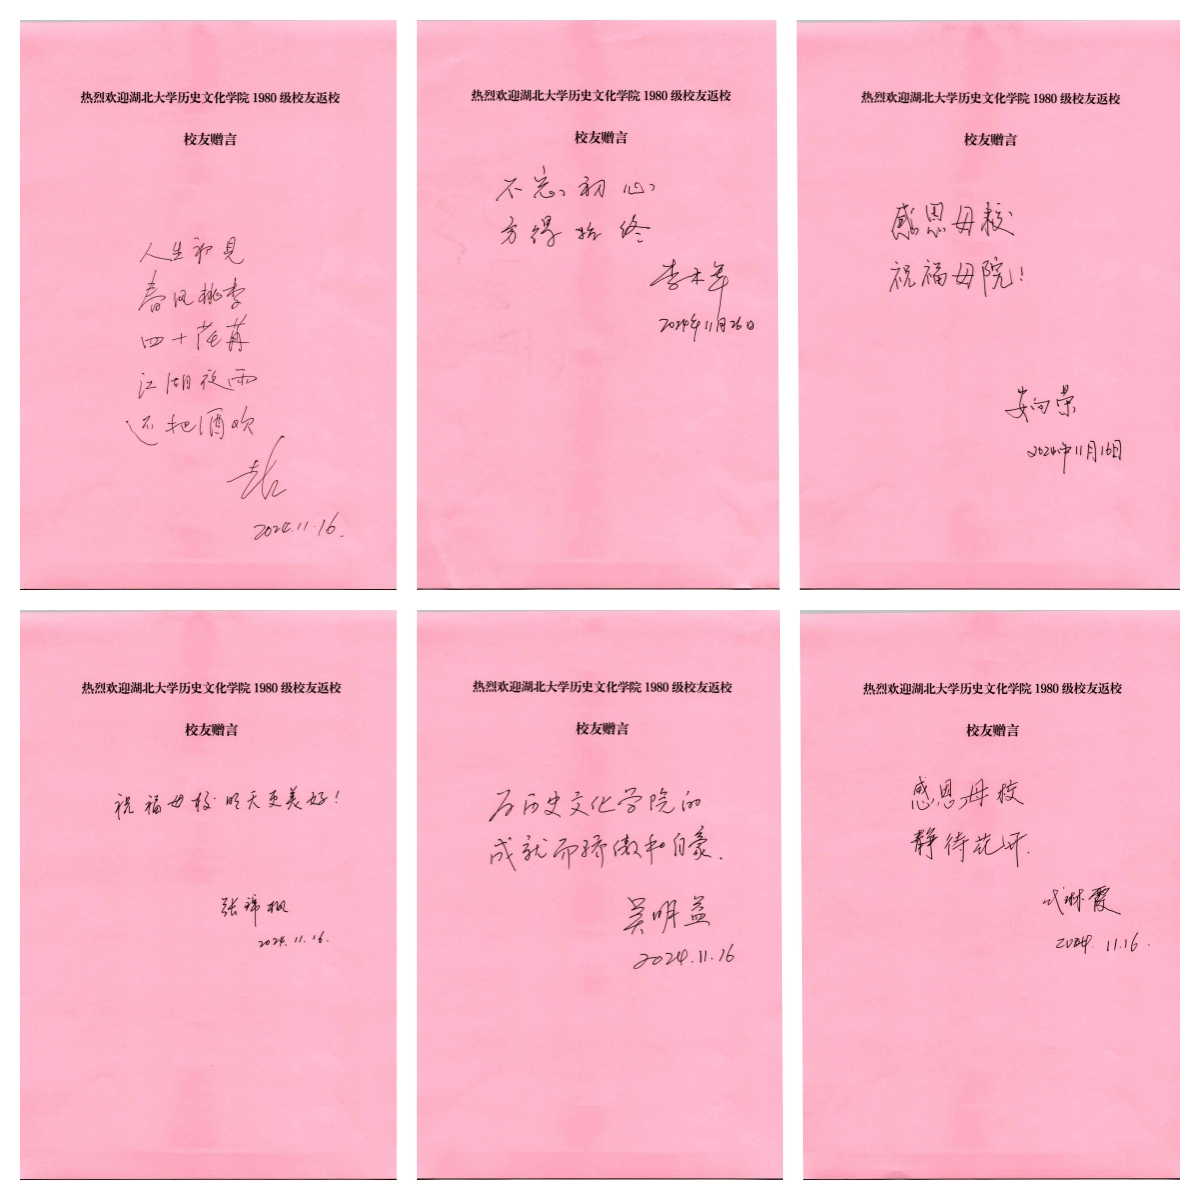 热烈欢迎湖北大学历史文化学院 1980 级校友返校
校友赠言
人生初见
春风桃李
四十荏苒
江湖夜雨
还把酒欢
2024.11.16.
热烈欢迎湖北大学历史文化学院 1980 级校友返校
校友赠言
不忘初心
方得始终
李木年
2024年11月26日
热烈欢迎湖北大学历史文化学院 1980 级校友返校
校友赠言
感恩母校
祝福母院!
安向荣
2024年11月16日
热烈欢迎湖北大学历史文化学院 1980 级校友返校
校友赠言
祝福母校明天更美好!
张锦枫
2024.11.16.
热烈欢迎湖北大学历史文化学院 1980 级校友返校
校友赠言
为历史文化学院的
成就而骄傲和自豪.
吴明益
2024.11.16
热烈欢迎湖北大学历史文化学院 1980 级校友返校
校友赠言
感恩母校
静待花开.
琳霞
2024.11.16.